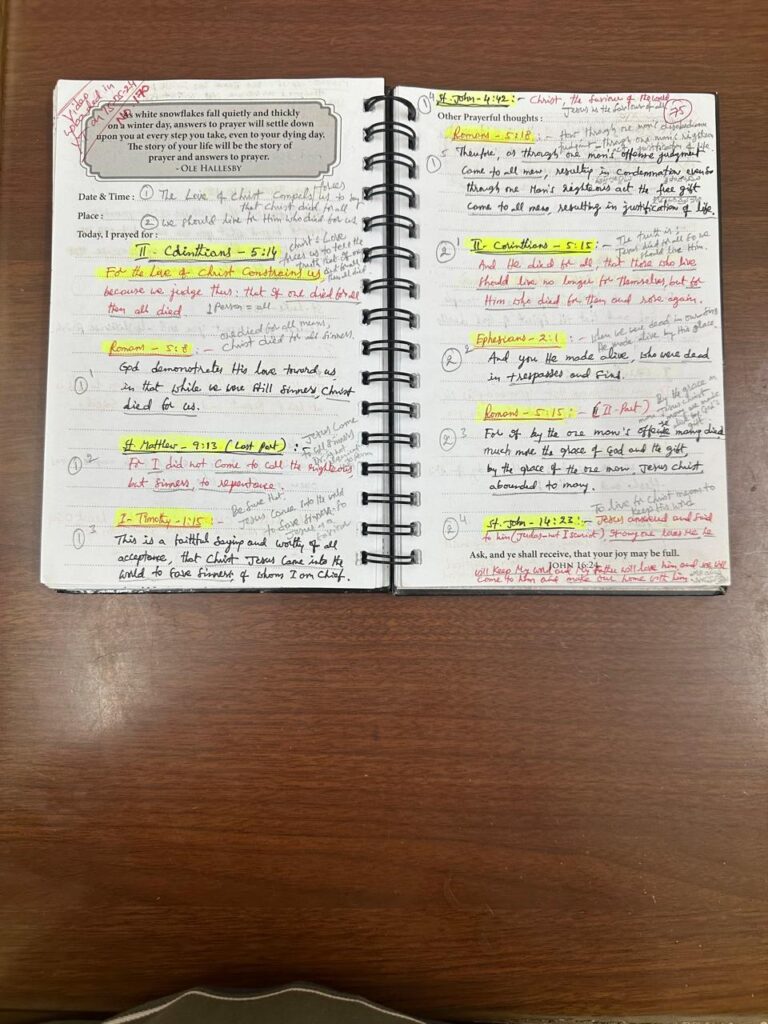 Video
uploaded in
on 15-05-24
No 170
As white snowflakes fall quietly and thickly
on a winter day, answers to prayer will settle down
upon you at every step you take, even to your dying day.
The story of your life will be the story of
prayer and answers to prayer.
- OLE HALLESBY
Date & Time : ① The Love of Christ Compels us to
that Christ died for all
Place :
② we should live for Him who died for us
Today, I prayed for :
II - Corinthians - 5:14
Christ's Love
forces us to tell the
truth that if one
died for all
all died
For the Love of Christ Constrains us
because we judge thus: that if one died for all
then all died. 1 Person = all
one died for all means,
Christ died for all Sinners.
Romans - 5:8 :-
① 1 God demonstrates His love toward us
in that while we were still Sinners, Christ
died for us.
St Matthew - 9:13 (Last Part) :-
Jesus Came
① 2 For I did not come to call the righteous,
but Sinners, to repentance.
Be sure that
Jesus Came into the world
to Save Sinners. So
I - Timothy - 1:15 :-
① 3 This is a faithful saying and worthy of all
acceptance, that Christ Jesus Came into the
World to Save Sinners, of whom I am Chief.
① 4 St. John - 4:42 :- Christ, the Saviour of the World
Jesus is the Saviour of all
75
Other Prayerful thoughts :
Romans - 5:18 :- How through one man's
judgment - through one man's
① 5 Therefore, as through one man's offense judgment
came to all men, resulting in Condemnation, even so
through one Man's righteous act the free gift
came to all men, resulting in justification of life.
II - Corinthians - 5:15 :- The truth is:
Jesus died for all So we
should live Him.
② 1 And He died for all, that those who live
should live no longer for themselves, but for
Him who died for them and rose again.
Ephesians - 2:1 :- When we were dead in our sins
He made alive by His grace.
② 2 And you He made alive, who were dead
in trespasses and Sins.
Romans - 5:15 :- (II - Part)
By the grace of
Jesus Christ
② 3 For if by the one man's offense many died,
much more the grace of God and the gift
by the grace of the one man, Jesus Christ,
abounded to many.
To live for Christ means to
keep His word
② 4 St. John - 14:23 :- Jesus answered and Said
to him (Judas-not Iscariot), If anyone loves Me he
Ask, and ye shall receive, that your joy may be full.
JOHN 16:24
will keep My word and My Father will love him and we will
come to him and make our home with him.